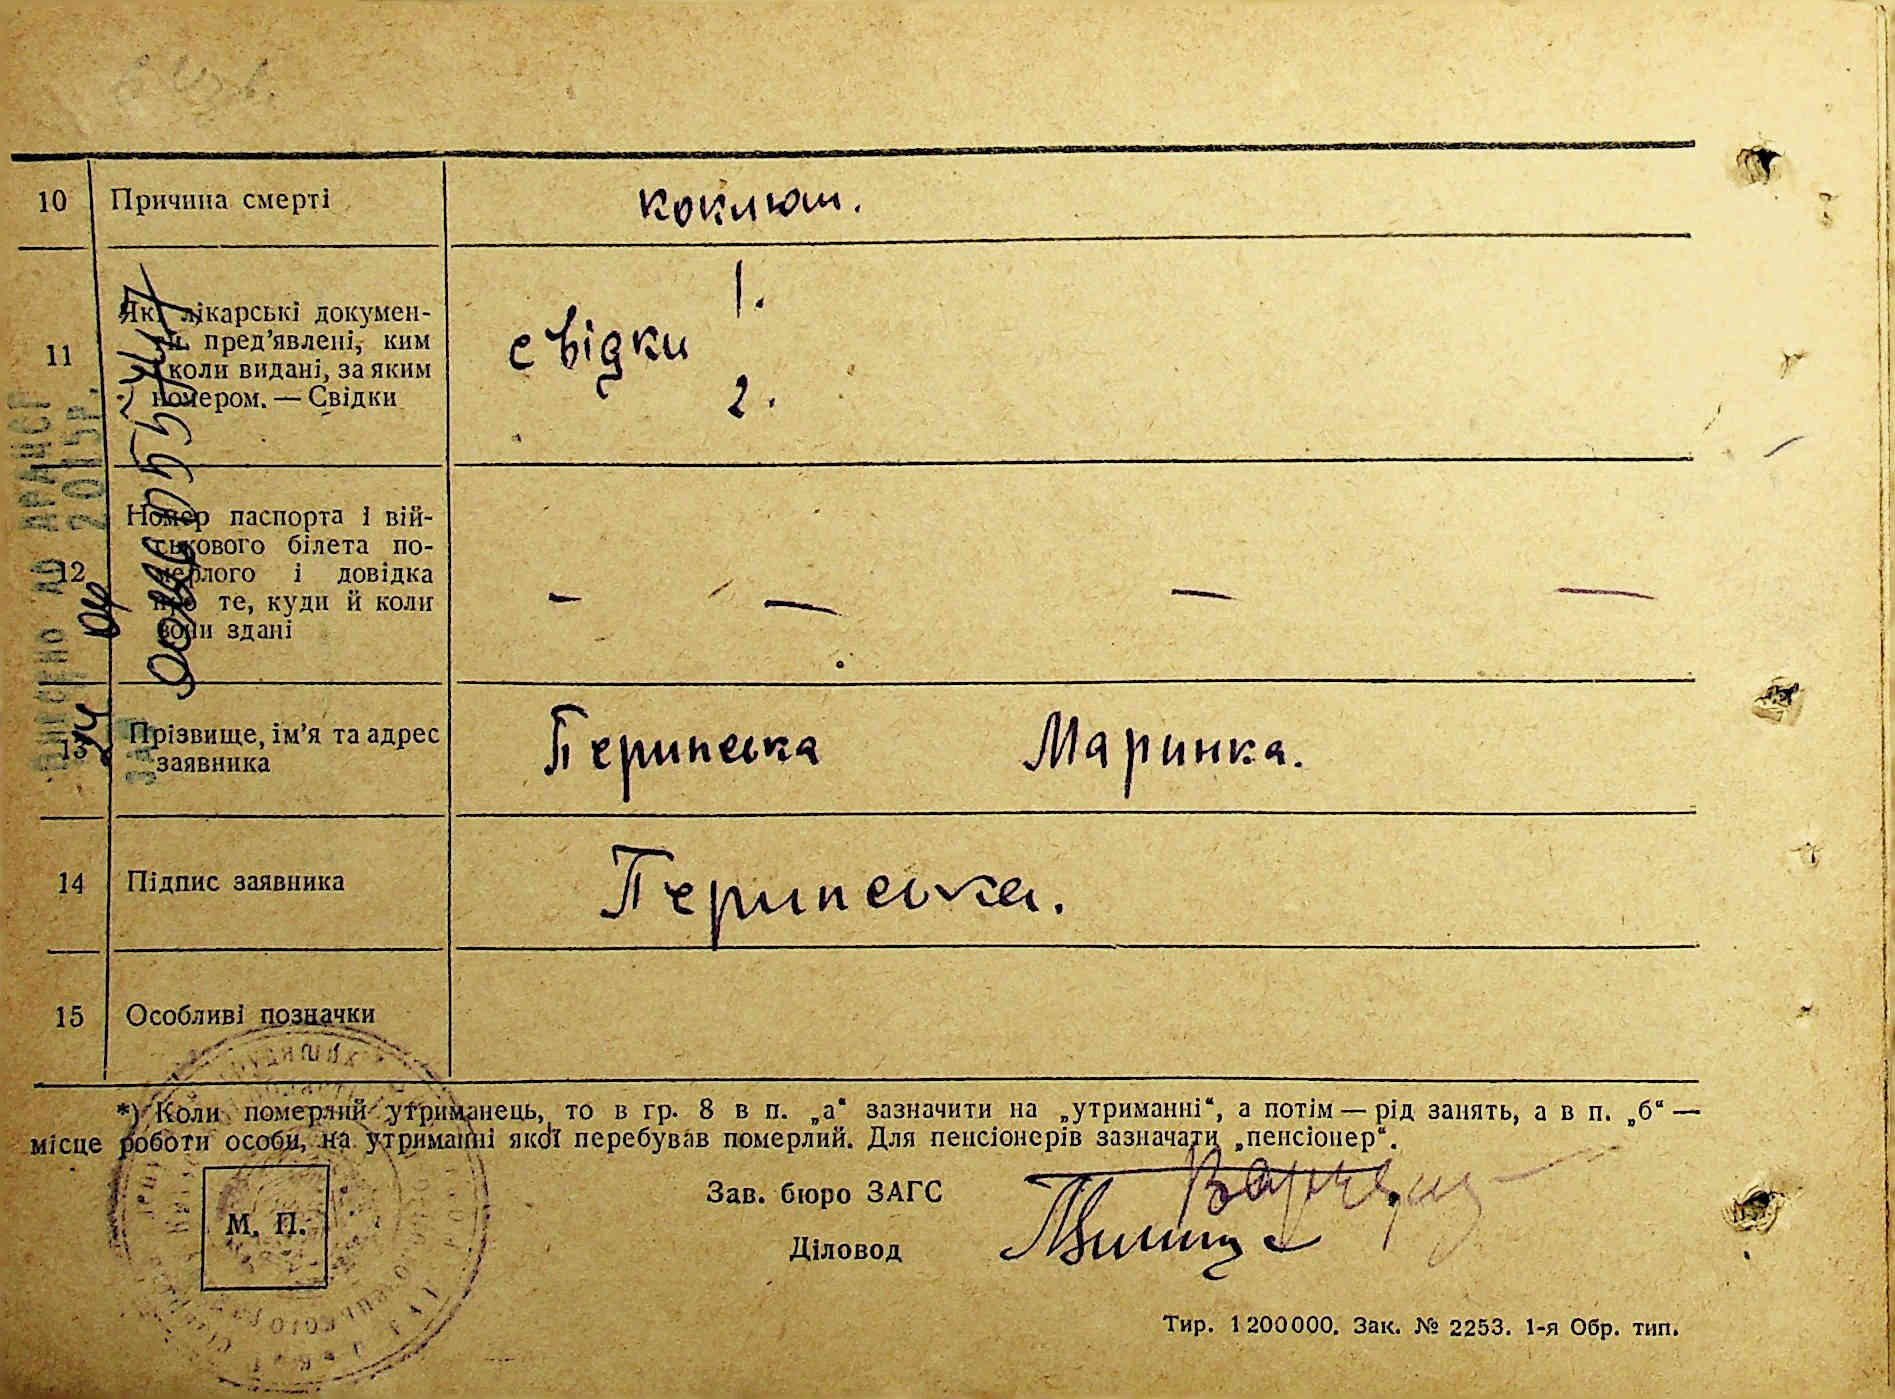 10 Причина смерті коклюш.
11 Які лікарські докумен-
ти пред’явлені, ким
і коли видані, за яким
номером. — Свідки
свідки 1.
2.
12 Номер паспорта і вій-
ськового білета по-
мерлого і довідка
про те, куди й коли
вони здані
— — — —
13 Прізвище, ім’я та адрес
заявника
Маринка.
14 Підпис заявника
15 Особливі позначки
*) Коли померлий утриманець, то в гр. 8 в п. „а“ зазначити на „утриманні“, а потім — рід занять, а в п. „б“ —
місце роботи особи, на утриманні якої перебував померлий. Для пенсіонерів зазначати „пенсіонер“.
Зав. бюро ЗАГС
М. П.
Діловод
Тир. 1200000. Зак. № 2253. 1-я Обр. тип.